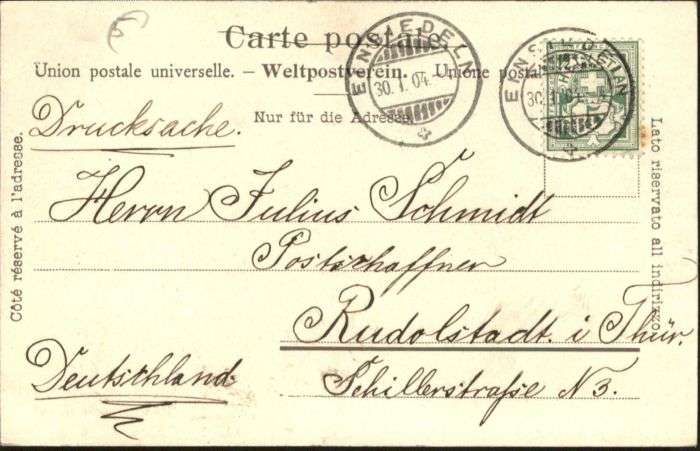 Carte postale.
Union postale universelle. — Weltpostverein. — Unione postale
Nur für die Adresse.
EINSIEDELN
30.I.04.
EINSIEDELN
30.I.04.
HELVETIA
Drucksache.
Côté réservé à l'adresse.
Lato riservato all indirizzo.
Herrn Julius Schmidt
Postschaffner
Rudolstadt. i Thür.
Deutschland
Schillerstraße N 3.